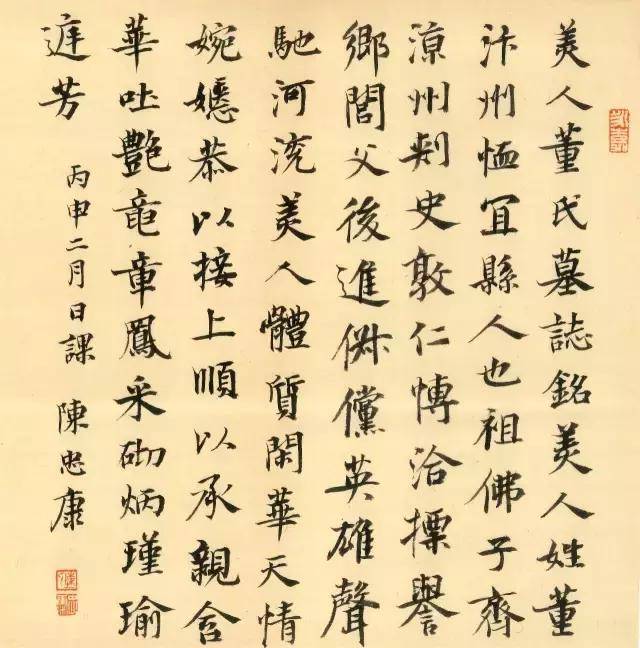 美人董氏墓誌銘美人姓董
汴州恤冝縣人也祖佛子齊
涼州刾史敦仁愽洽摽譽
鄉閭父後進俶儻英雄聲
馳河浣美人體質閑華天情
婉嫕恭以接上順以承親含
華吐艷竜章鳳采砌炳瑾瑜
庭芳
丙申二月日課 陳忠康